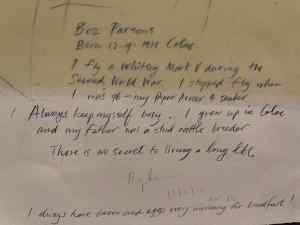 Boz Parsons
Born 12-9-1918 Colac
I fly a Whitley Mark V during the
Second World War. I stopped fly when
I was 96 - my Piper Arrow 4 seater
I Always keep myself busy. I grew up in Colac
and my father was a stud cattle breeder
There is no secret to living a long life.
I always have bacon and eggs every morning for breakfast!